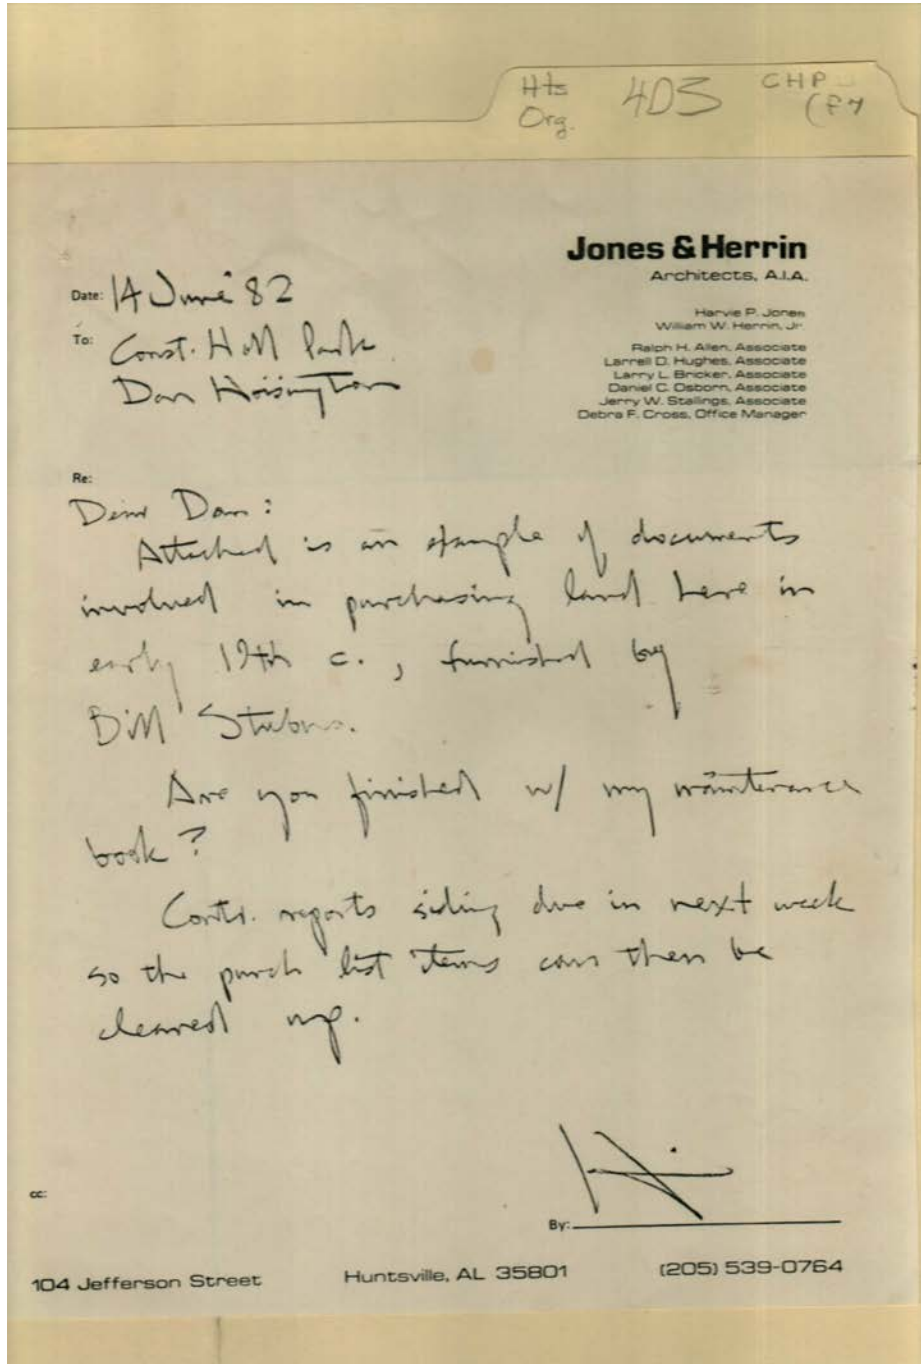 Hts
Org.
4D3
CHP
(F7
Jones & Herrin
Architects, A.I.A.
Harvie P. Jones
William W. Herrin, Jr.
Ralph H. Allen, Associate
Larrell D. Hughes, Associate
Larry L. Bricker, Associate
Daniel C. Osborn, Associate
Jerry W. Stallings, Associate
Debra F. Cross, Office Manager
Date: 14 June '82
To: Const. Hall Park
Dan Hoisington
Re:
Dear Dan:
Attached is an example of documents
involved in purchasing land here in
early 19th c., furnished by
Bill Stubno.
Are you finished w/ my maintenance
book?
Contr. reports siding due in next week
so the punch list items can then be
cleared up.
cc:
By:
104 Jefferson Street Huntsville, AL 35801 (205) 539-0764